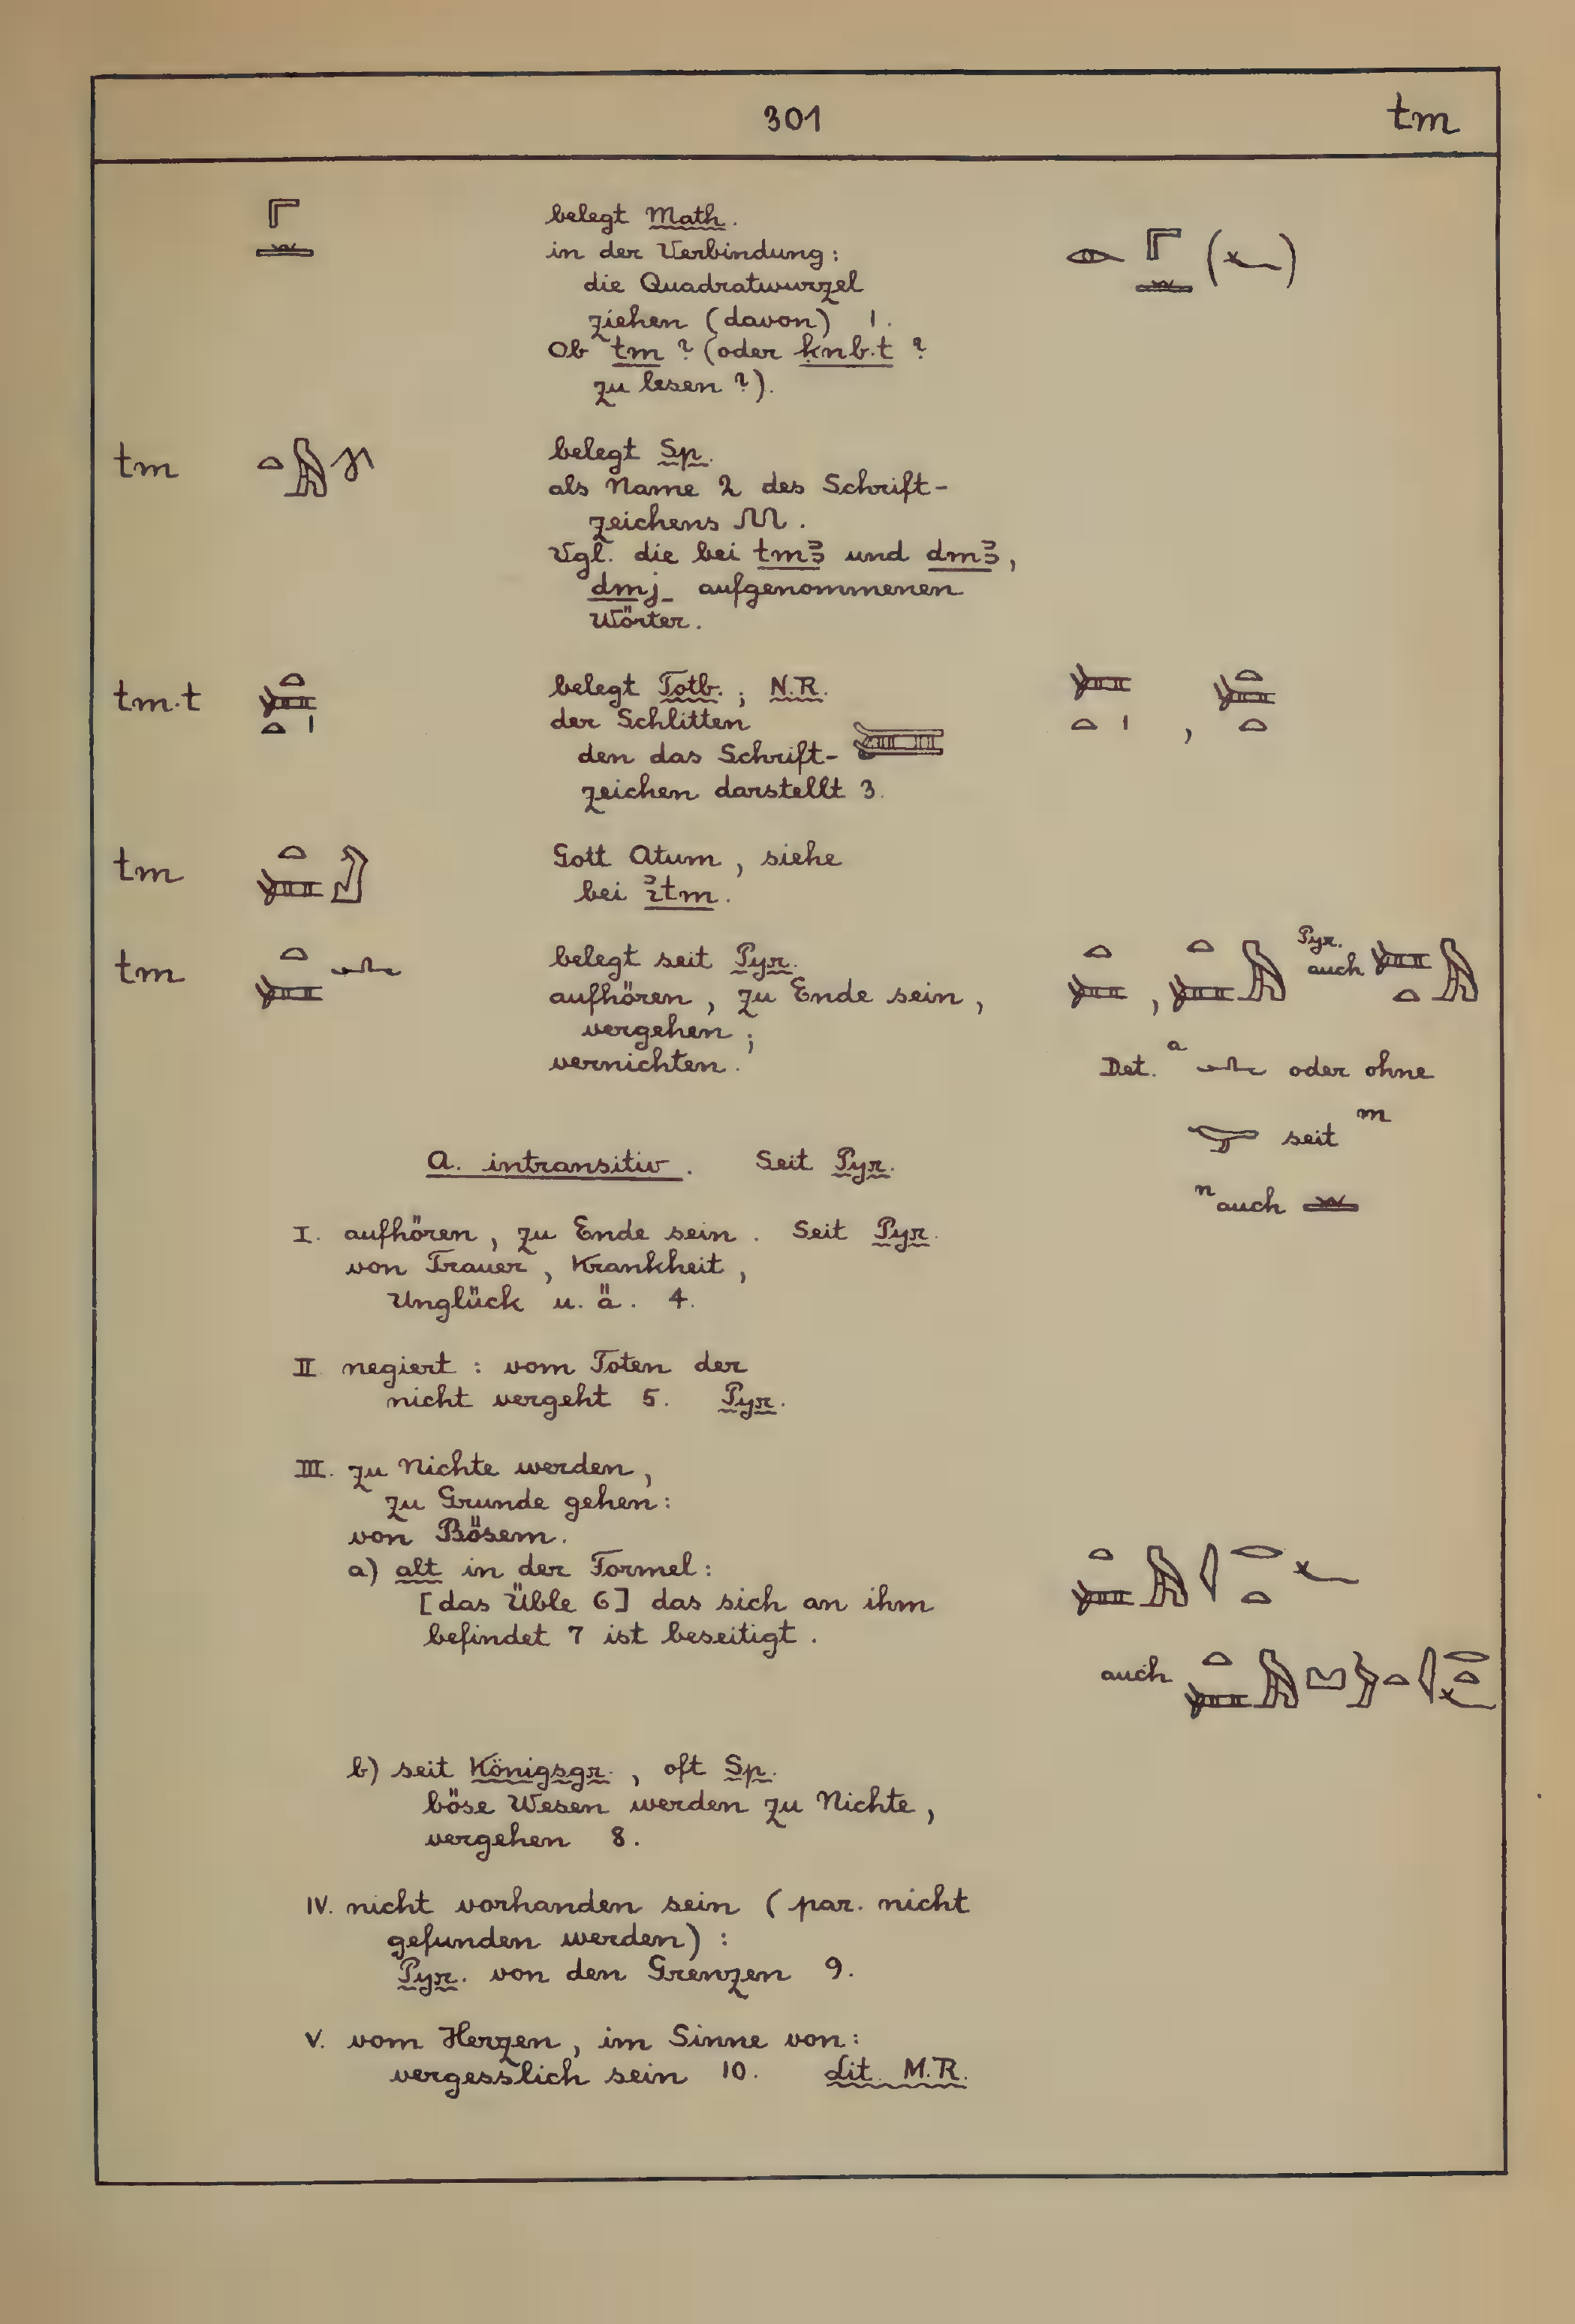 301 tm
belegt Math.
in der Verbindung:
die Quadratwurzel
ziehen (davon) 1.
Ob tm? (oder ḳnb.t?
zu lesen?).
tm belegt Sp.
als Name 2 des Schrift-
zeichens
Vgl. die bei tmꜣ und dmꜣ,
dmj aufgenommenen
Wörter.
tm.t belegt Totb.; N.R.
der Schlitten
den das Schrift-
zeichen darstellt 3.
tm Gott Atum, siehe
bei ꞽtm.
tm belegt seit Pyr. Pyr. auch
aufhören, zu Ende sein,
vergehen;
vernichten.
Det. a oder ohne
seit m
n auch
A. intransitiv. Seit Pyr.
I. aufhören, zu Ende sein. Seit Pyr.
von Trauer, Krankheit,
Unglück u. ä. 4.
II negiert: vom Toten der
nicht vergeht 5. Pyr.
III. zu Nichte werden,
zu Grunde gehen:
von Bösem.
a) alt in der Formel:
[das Üble 6] das sich an ihm
befindet 7 ist beseitigt.
auch
b) seit Königsgr., oft Sp.
böse Wesen werden zu Nichte,
vergehen 8.
IV. nicht vorhanden sein (par. nicht
gefunden werden):
Pyr. von den Grenzen 9.
V. vom Herzen, im Sinne von:
vergesslich sein 10. Lit. M.R.